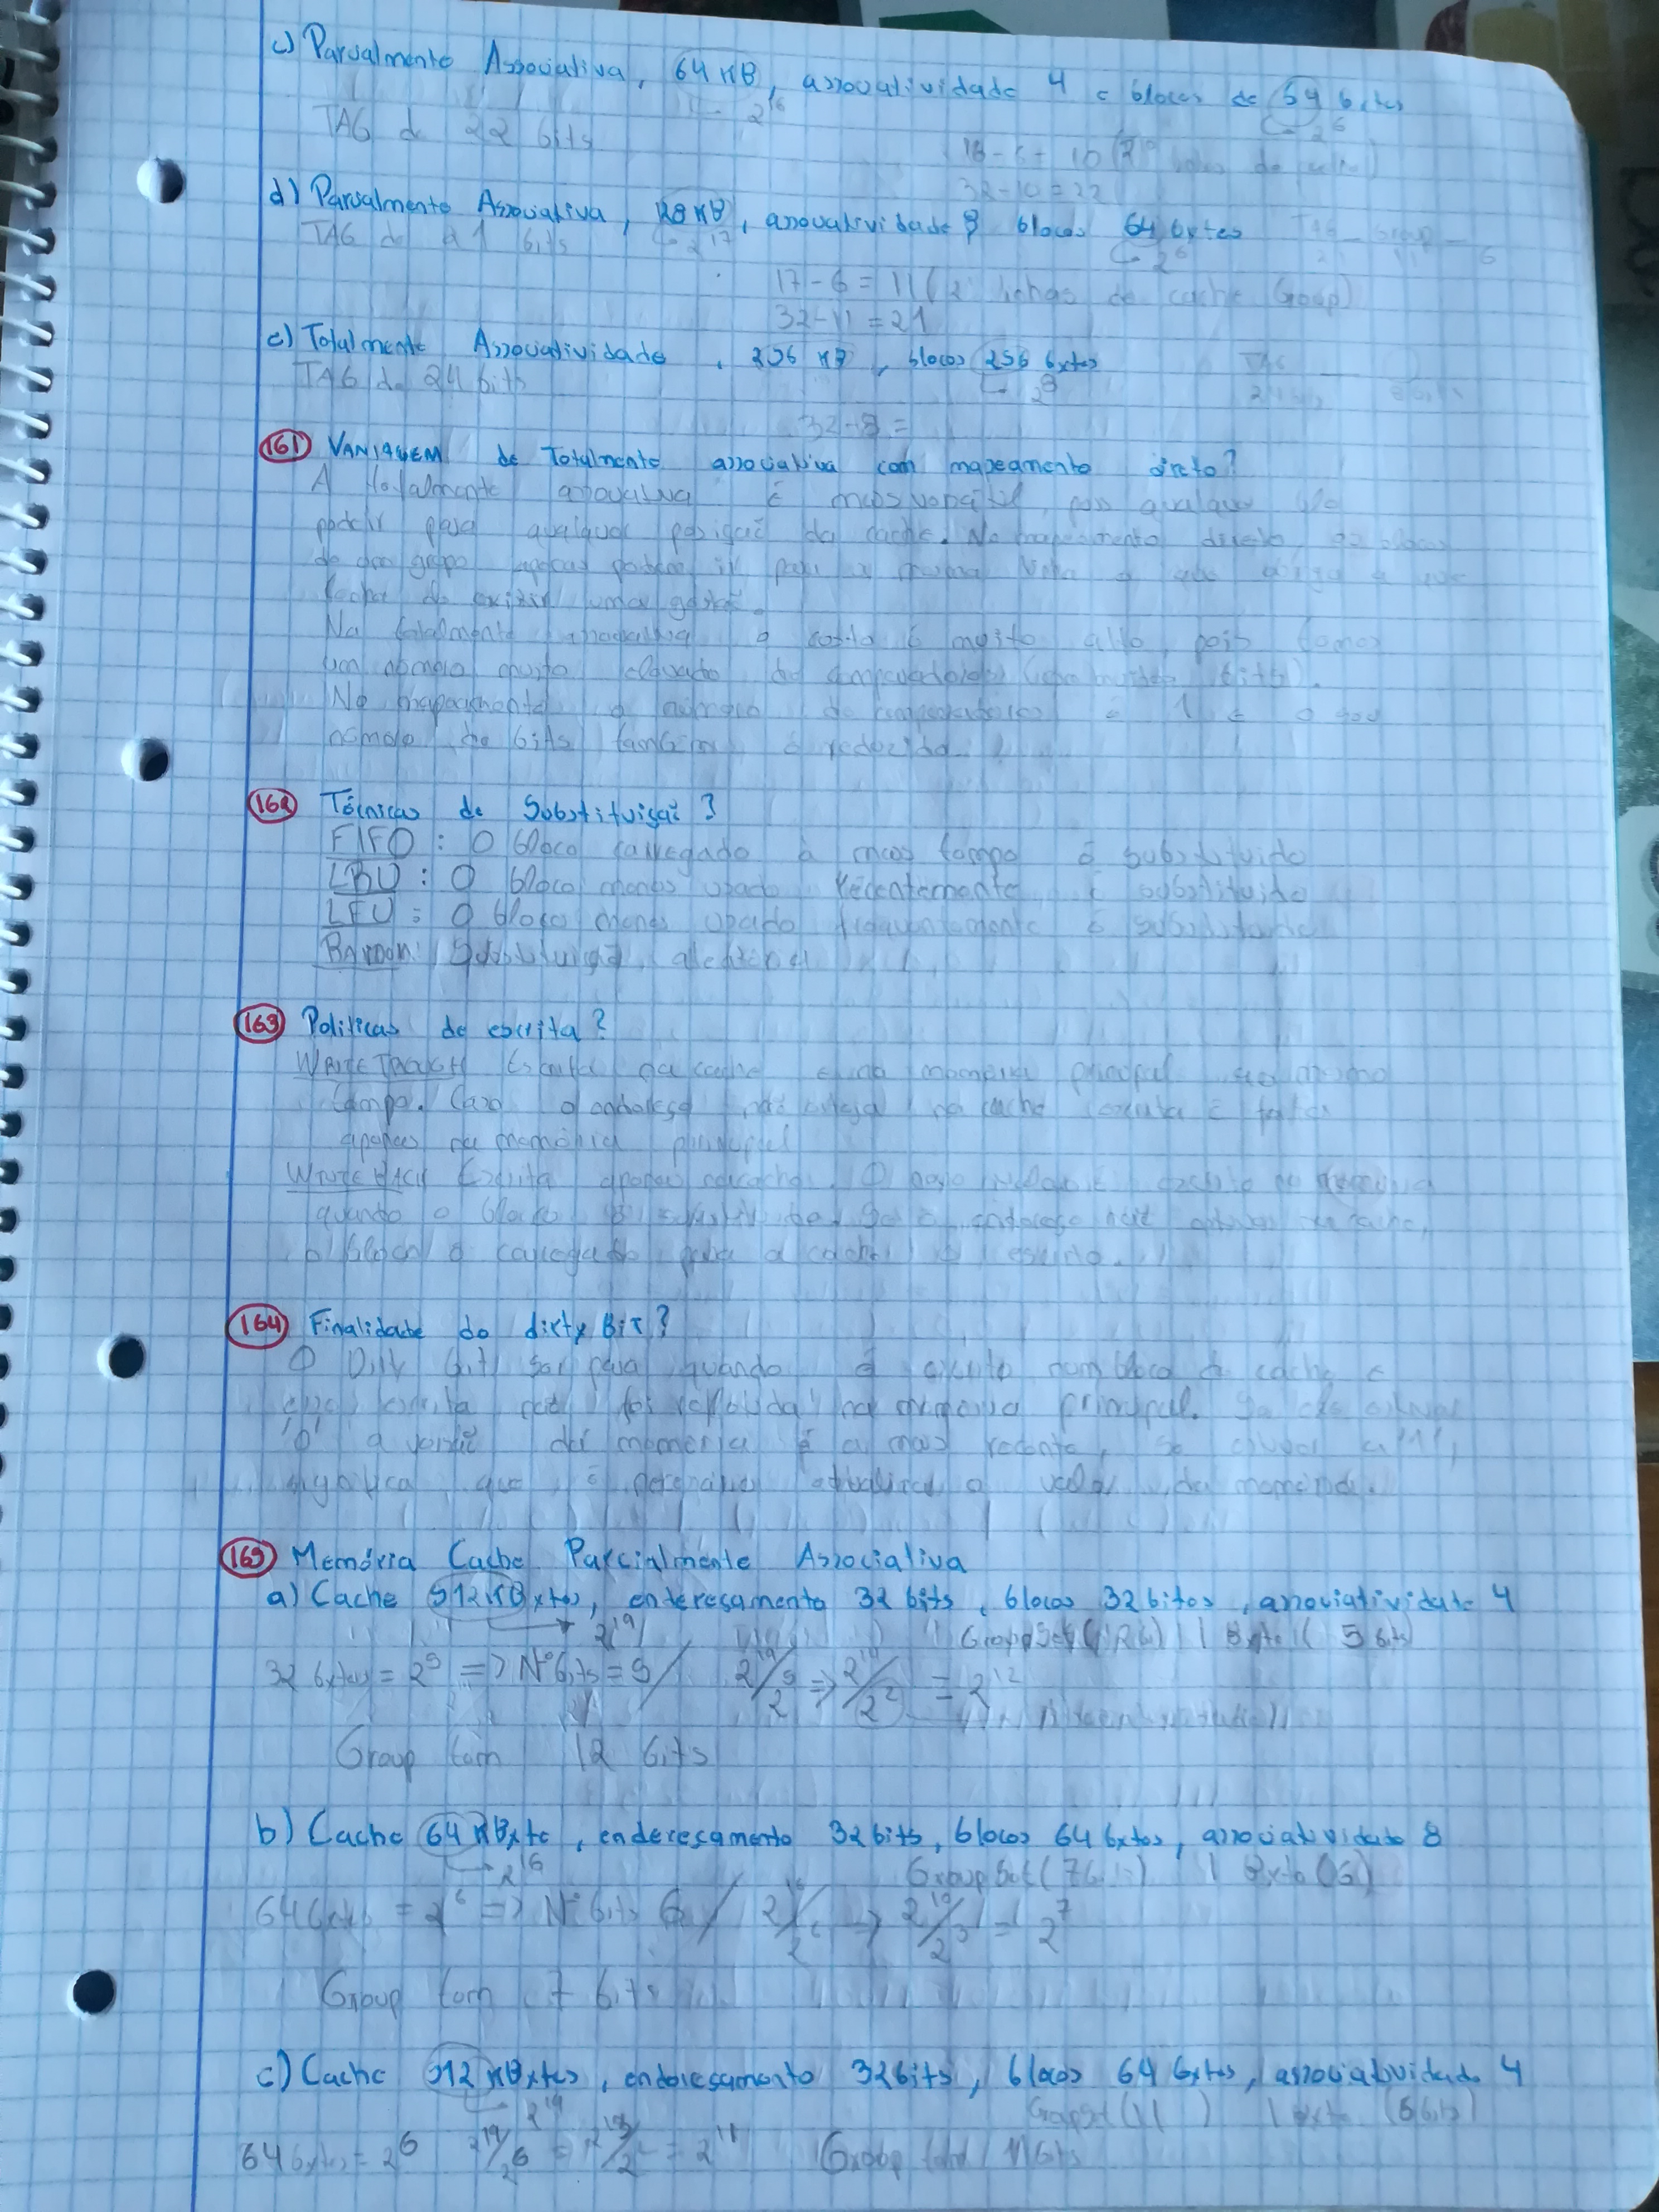 c) Parcialmente Associativa, 64 KB, associatividade 4 e blocos de 64 bytes
TAG de 22 bits 2^16 2^6
16 - 6 = 10
32-10=22
d) Parcialmente Associativa, 128 KB, associatividade 8 blocos 64 bytes TAG Group
TAG de 21 bits 2^17 2^6 6
17-6 = 11 linhas de cache Group)
32-11 = 21
e) Totalmente Associatividade, 256 KB, blocos 256 bytes TAG
TAG de 24 bits 2^8
32-8=
161 VANTAGEM de Totalmente associativa com mapeamento direto?
A totalmente associativa é mais, pois qualquer
pode ir para qualquer posição da cache. No mapeamento direto, os blocos
de um grupo apenas podem ir para a mesma linha o que
existir uma gestão.
Na totalmente associativa o custo é muito alto, pois temos
um número muito elevado de comparadores (com muitos bits).
No mapeamento o número de comparadores é 1 e o seu
número de bits também é reduzido.
162 Técnicas de Substituição?
FIFO: O bloco carregado à mais tempo é substituido
LRU: O bloco menos usado recentemente é substituido
LFU: O bloco menos usado frequentemente é substituido
Random: Substituição aleatória
163 Politicas de escrita?
WRITE TROUGH Escrita na cache e na memória principal ao mesmo
tempo. Caso o endereço não esteja na cache escrita é feita
apenas na memória principal
WRITE BACK Escrita apenas na cache. O novo é escrito na memória
quando o bloco é substituido. Se o endereço não estiver na cache,
o bloco é carregado para a cache e escrito.
164 Finalidade do dirty Bit?
O Dirty bit serve para quando é escrito num bloco da cache e
essa escrita não foi refletida na memória principal. Se ele estiver
'0' a versão da memória é a mais recente, se estiver a '1',
significa que é necessário atualizar o valor da memória.
165 Memória Cache Parcialmente Associativa
a) Cache 512 KBytes, endereçamento 32 bits, blocos 32 bitos, associatividade 4
2^19 Group Set (12b) | Byte (5 bits)
32 bytes = 2^5 => Nº bits = 5 / 2^19/2^5 => 2^14/2^2 = 2^12
Group tem 12 bits
b) Cache 64 KByte, endereçamento 32 bits, blocos 64 bytes, associatividade 8
2^16 Group Set (7bits) | Byte (6)
64 bytes = 2^6 => Nº bits 6 / 2^16/2^6 => 2^10/2^3 = 2^7
Group tem 7 bits
c) Cache 512 KBytes, endereçamento 32 bits, blocos 64 bytes, associatividade 4
2^19 Group Set (11) | Byte (6 bits)
64 bytes = 2^6 2^19/2^6 = 2^13/2^2 = 2^11 Group tem 11 bits